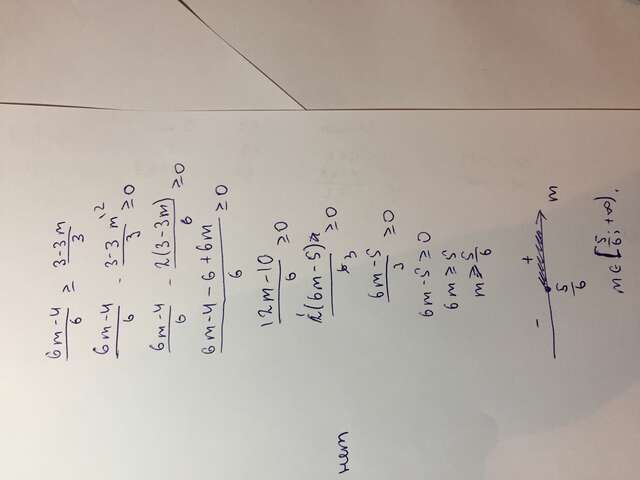 6m-4/6 ≥ 3-3m/3
6m-4/6 - 3-3m\2/3 ≥ 0
6m-4/6 - 2(3-3m)/6 ≥ 0
6m-4-6+6m/6 ≥ 0
12m-10/6 ≥ 0
2(6m-5)/6 3 ≥ 0
нет
6m-5/3 ≥ 0
6m-5 ≥ 0
6m ≥ 5
m ≥ 5/6
- +
5/6 m
m∈[5/6; +∞).